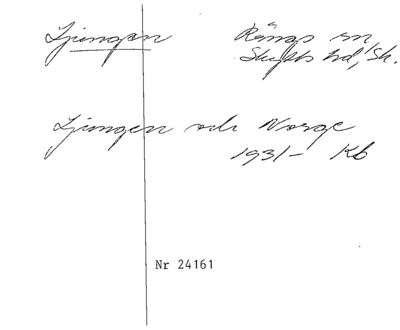 Ljungen Rängs sn,
Skytts hd, Sk.
Ljungen och Norge
1931- Kb
Nr 24161